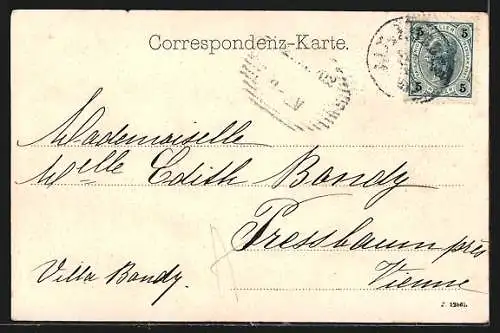 Correspondenz-Karte.
5 5
5 5
Mademoiselle
Melle Edith Bondy
Pressbaum près
Vienne
Villa Bondy.